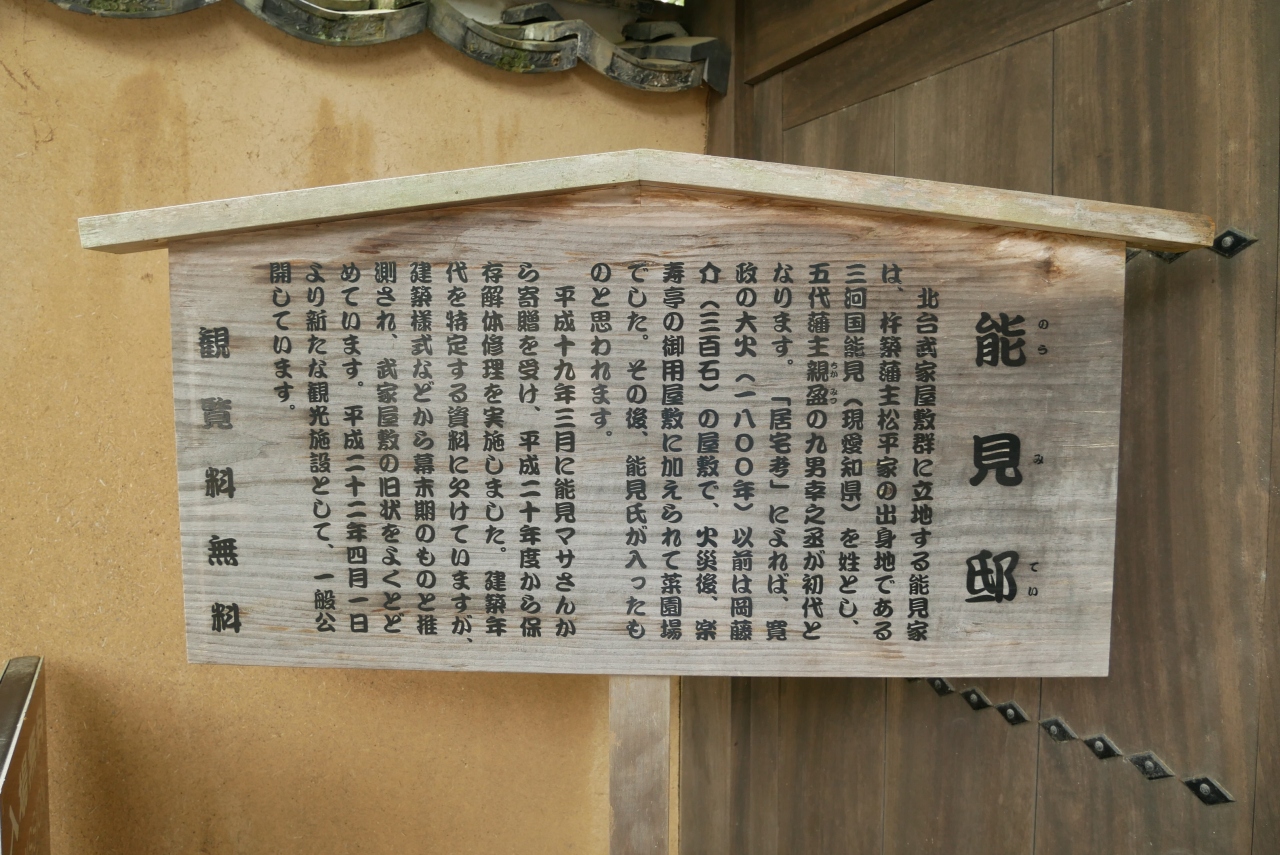 能見邸
のうみてい
北台武家屋敷群に立地する能見家
は、杵築藩主松平家の出身地である
三河国能見（現愛知県）を姓とし、
五代藩主親盈の九男幸之丞が初代と
ちかみつ
なります。「居宅考」によれば、寛
政の大火（一八〇〇年）以前は岡藤
介（三百石）の屋敷で、火災後、楽
寿亭の御用屋敷に加えられて菜園場
でした。その後、能見氏が入ったも
のと思われます。
平成十九年三月に能見マサさんか
ら寄贈を受け、平成二十年度から保
存解体修理を実施しました。建築年
代を特定する資料に欠けていますが、
建築様式などから幕末期のものと推
測され、武家屋敷の旧状をよくとど
めています。平成二十二年四月一日
より新たな観光施設として、一般公
開しています。
観覧料無料